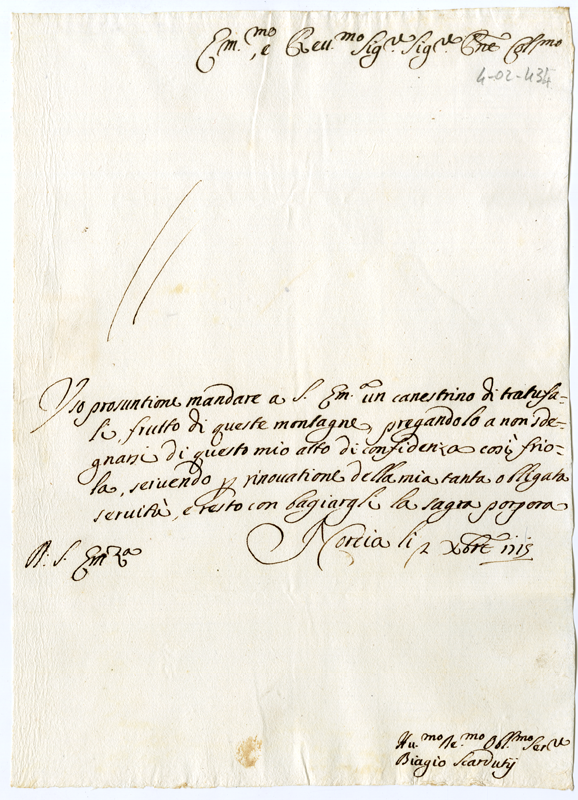 Em.mo, e Reu.mo Sig.re Sig.re Pne Col.mo
4-02-434
Uso prosuntione mandare a S. Em.a un canestrino di tratufa-
li, frutto di queste montagne, pregandolo a non sde-
gnarsi di questo mio atto di confidenza così frio-
la, seruendo p rinouatione della mia tanta obligata
seruitù, e resto con bagiargli la sagra porpora
Norcia li 2 Xbre 1715
A. S. Emza
Hu.mo De.mo Obl.mo Ser.re
Biagio Scardutij